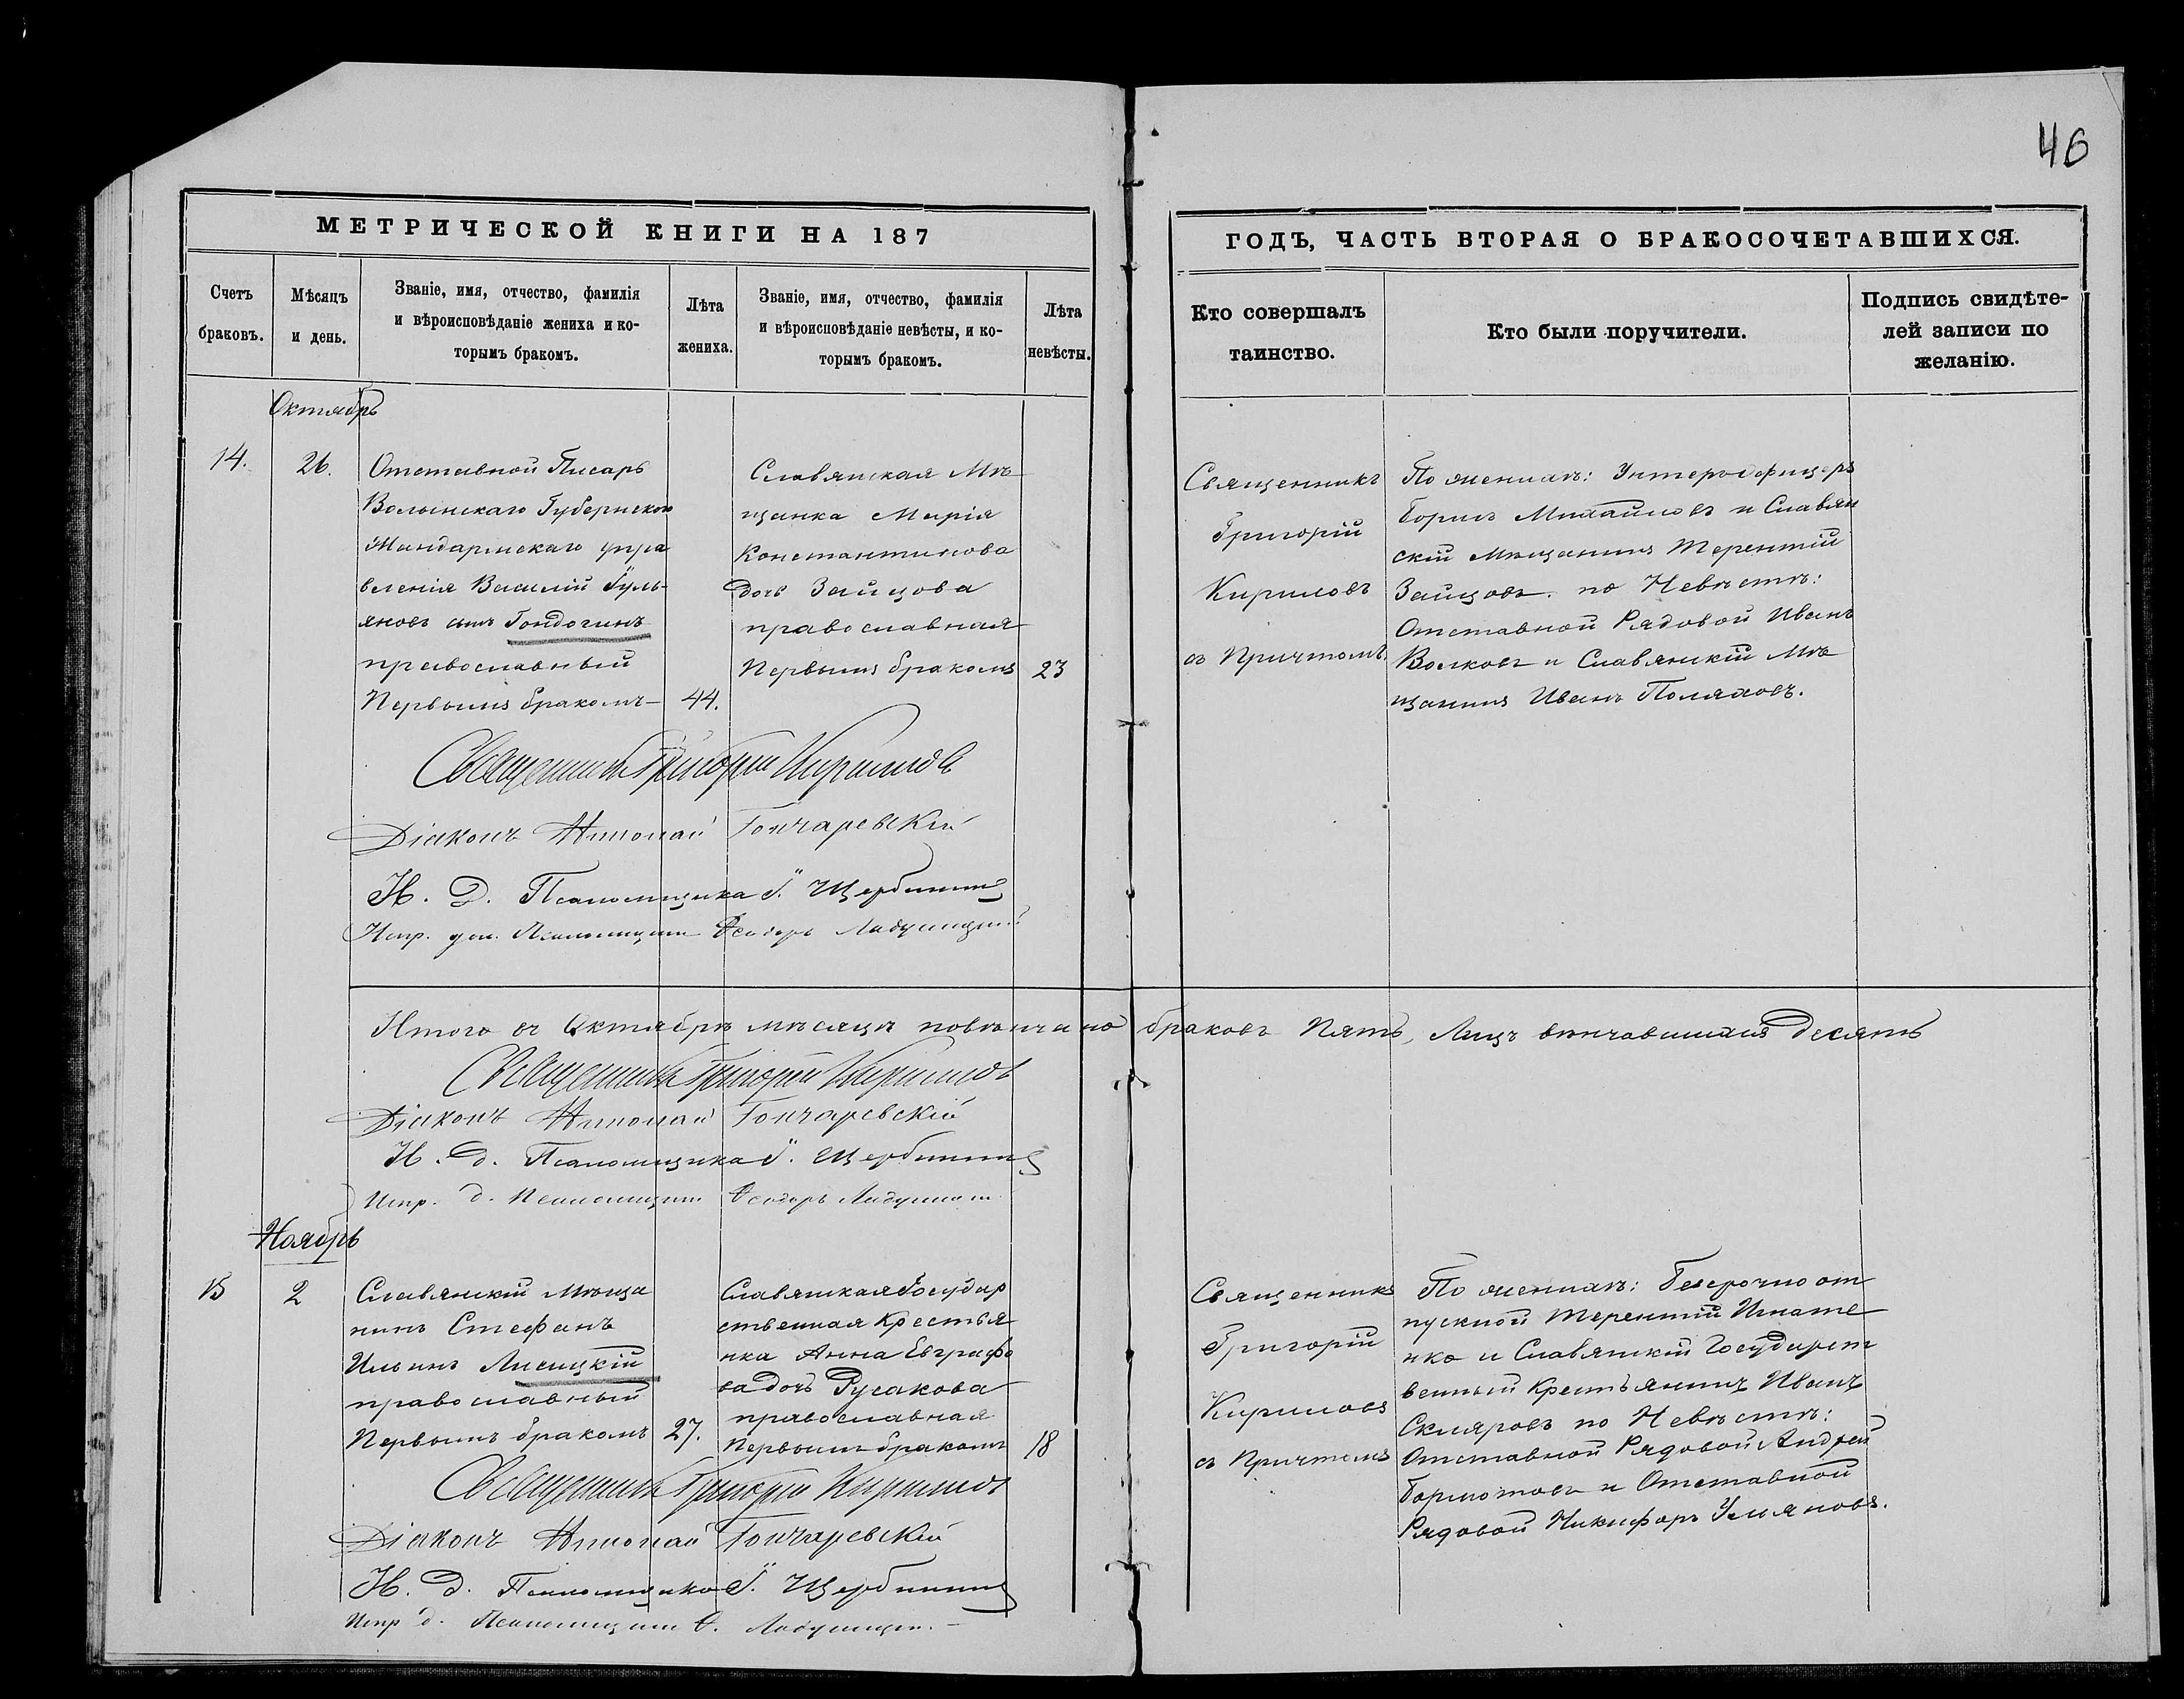 46
МЕТРИЧЕСКОЙ КНИГИ НА 187
ГОДЪ, ЧАСТЬ ВТОРАЯ О БРАКОСОЧЕТАВШИХСЯ.
Счетъ
браковъ.
Мѣсяцъ
и день.
Званіе, имя, отчество, фамилія
и вѣроисповѣданіе жениха и ко-
торымъ бракомъ.
Лѣта
жениха.
Званіе, имя, отчество, фамилія
и вѣроисповѣданіе невѣсты, и ко-
торымъ бракомъ.
Лѣта
невѣсты.
Кто совершалъ
таинство.
Кто были поручители.
Подпись свидѣте-
лей записи по
желанію.
Октябрь
14.
26.
Отставной Писарь
Волынскаго Губернскаго
Жандармскаго упра
вленія Василій Гуль-
яновъ сынъ
православный
Первымъ бракомъ
44.
Славянская Мѣ
щанка Марія
Константинова
дочь Зайцова
православная
Первымъ бракомъ
23
Священникъ
Григорій
Кириловъ
съ Причтомъ
По женихѣ: Унтерофицеръ
Борисъ Михайловъ и Славян
скій Мѣщанинъ Терентій
Зайцовъ. по Невѣстѣ:
Отставной Рядовой Иванъ
Волковъ и Славянскій Мѣ
щанинъ Иванъ Поляковъ.
Священникъ Григорій Кириловъ
Діаконъ Николай Гончаревскій
И. Д. Псаломщика І. Щербининъ
Испр. дол. Псаломщика Ѳеодоръ
Итого въ Октябрѣ мѣсяцѣ повѣнчано браковъ Пять, Лицъ вѣнчавшихся Десять
Священникъ Григорій Кириловъ
Діаконъ Николай Гончаревскій
И. д. Псаломщика І. Щербининъ
Испр. д. Псаломщика Ѳеодоръ
Ноябрь
15
2
Славянскій Мѣща
нинъ Стефанъ
Ильинъ Лисицкій
православный
Первымъ бракомъ
27.
Славянская Государ
ственная Крестья
нка Анна Евграфо
ва дочь Русакова
православная
Первымъ бракомъ
18
Священникъ
Григорій
Кириловъ
съ Причтомъ
По женихѣ: Безсрочно от
пускной Терентій Игнате
нко и Славянскій Государст
венный Крестьянинъ Иванъ
Скляровъ по Невѣстѣ:
Отставной Рядовой Андрей
Бормотовъ и Отставной
Рядовой Никифоръ Ульяновъ.
Священникъ Григорій Кириловъ
Діаконъ Николай Гончаревскій
И. Д. Псаломщика І. Щербининъ
Испр д. Псаломщика Ѳ.